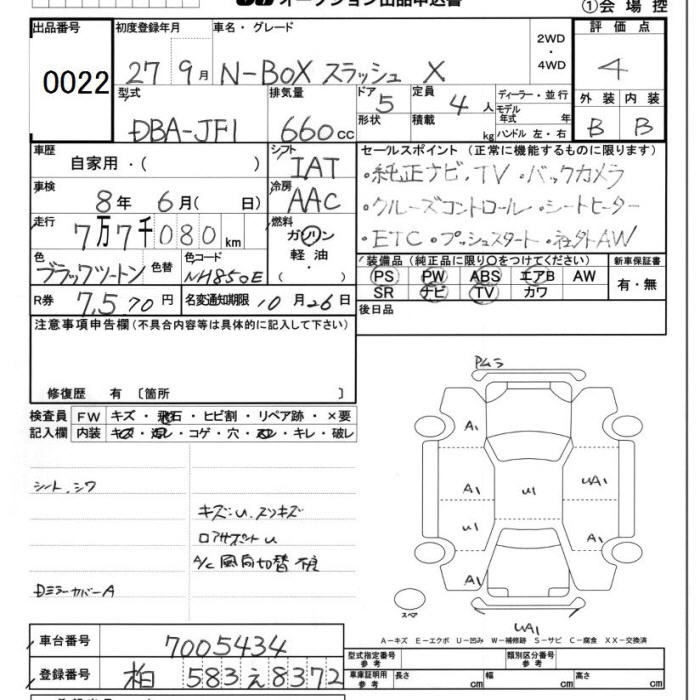 オークション出品申込書
①会場控
出品番号 0022
初度登録年月 27 9月
車名・グレード N-BOX スラッシュ X
2WD・4WD
評価点 4
型式 DBA-JF1
排気量 660cc
ドア 5 形状
定員 4人 積載 kg
ディーラー・並行
モデル年式 年
ハンドル 左・右
外装 B 内装 B
車歴 自家用・( )
シフト IAT
車検 8年 6月( 日)
冷房 AAC
走行 7万7千080km
燃料 ガソリン 軽油・
色 ブラックツートン 色替
色コード NH850E
R券 7,570円
名変通知期限 10月26日
セールスポイント(正常に機能するものに限ります)
・純正ナビ,TV・バックカメラ
・クルーズコントロール・シートヒーター
・ETC・プッシュスタート・社外AW
装備品(純正品に限り○をつけてください)
PS PW ABS エアB AW
SR ナビ TV カワ
新車保証書 有・無
後日品
注意事項申告欄(不具合内容等は具体的に記入して下さい)
修復歴 有〔箇所 〕
検査員記入欄
FW キズ・飛石・ヒビ割・リペア跡・×要
内装 キズ・汚レ・コゲ・穴・スレ・キレ・破レ
シート,シワ
キズ:U,スリキズ
ロアサポートU
A/C 風向切替 不良
DミラーカバーA
PムラA1
A1
A1
U1
U1
UA1
A1
A1
スペア
UA1
A-キズ E-エクボ U-凹み W-補修跡 S-サビ C-腐食 XX-交換済
車台番号 7005434
登録番号 柏 583 え 8372
型式指定番号参考
類別区分番号参考
車庫証明用参考 長さ cm 幅 cm 高さ cm